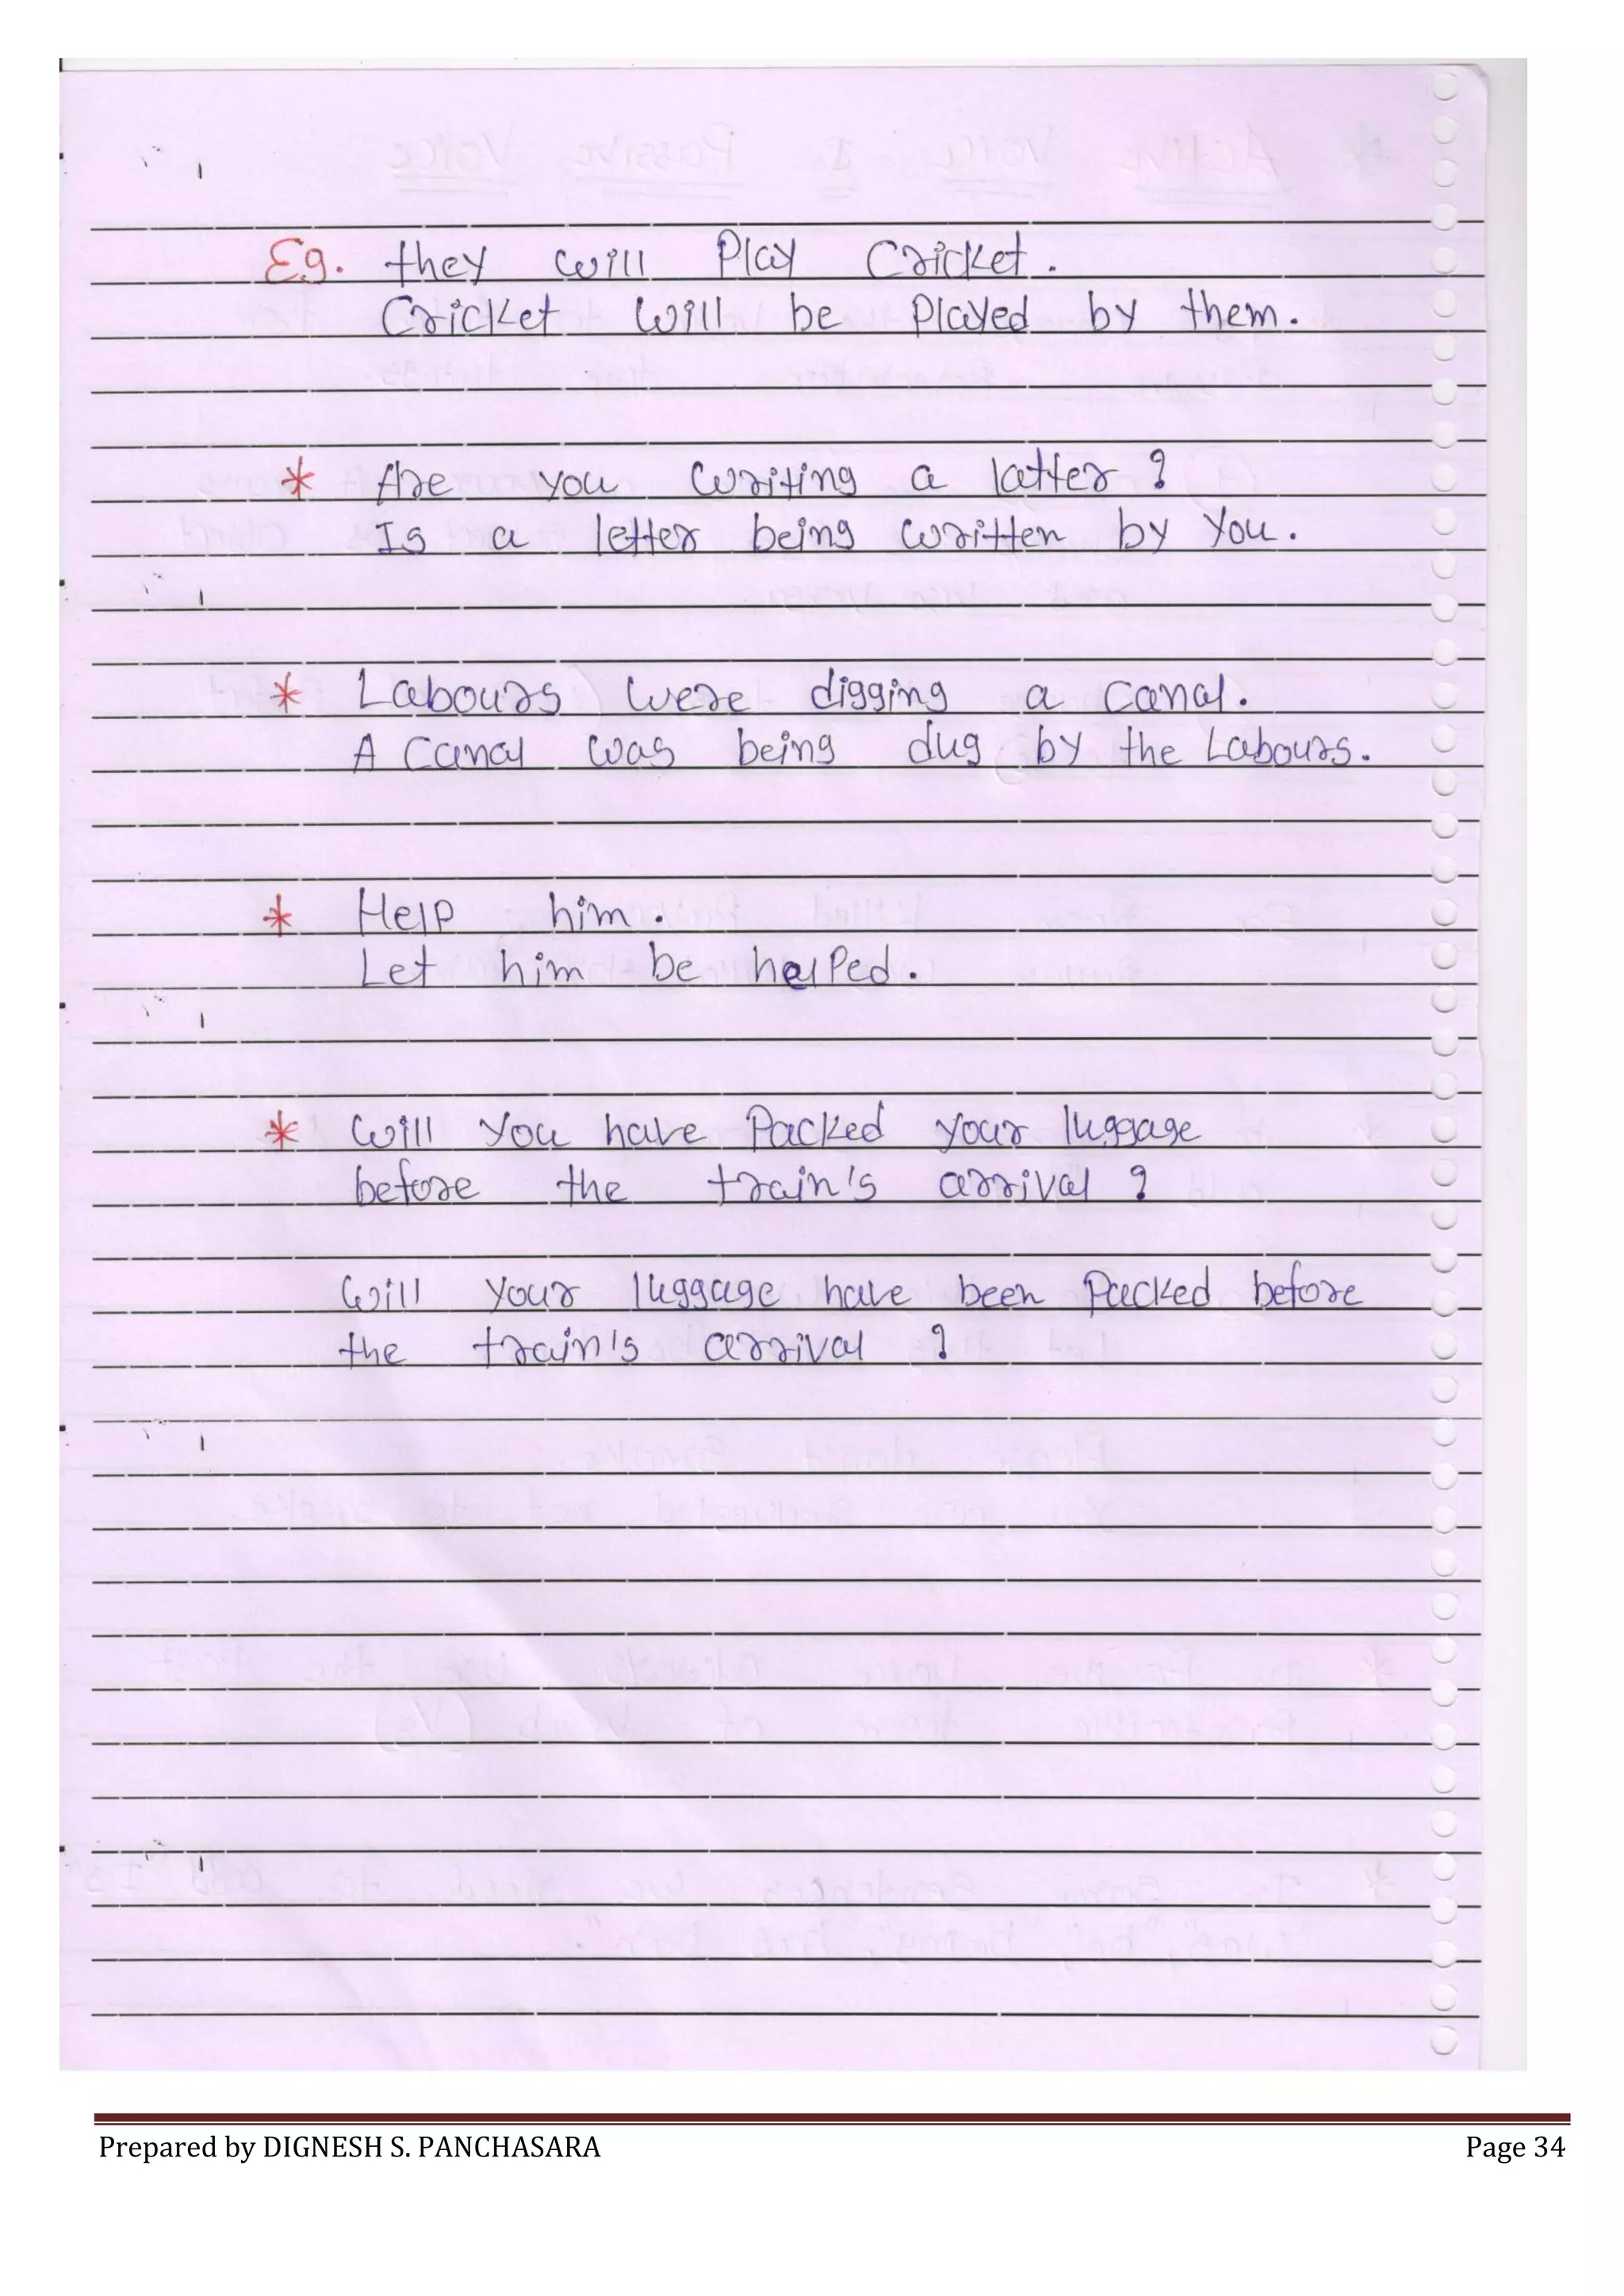 Eg. they will Play Cricket.
Cricket will be Played by them.
* Are you writing a latter ?
Is a letter being written by You.
* Labours were digging a Canal.
A Canal was being dug by the Labours.
* Help him.
Let him be helped.
* Will You have Packed your luggage
before the train's arrival ?
Will your luggage have been Packed before
the train's arrival ?
Prepared by DIGNESH S. PANCHASARA Page 34